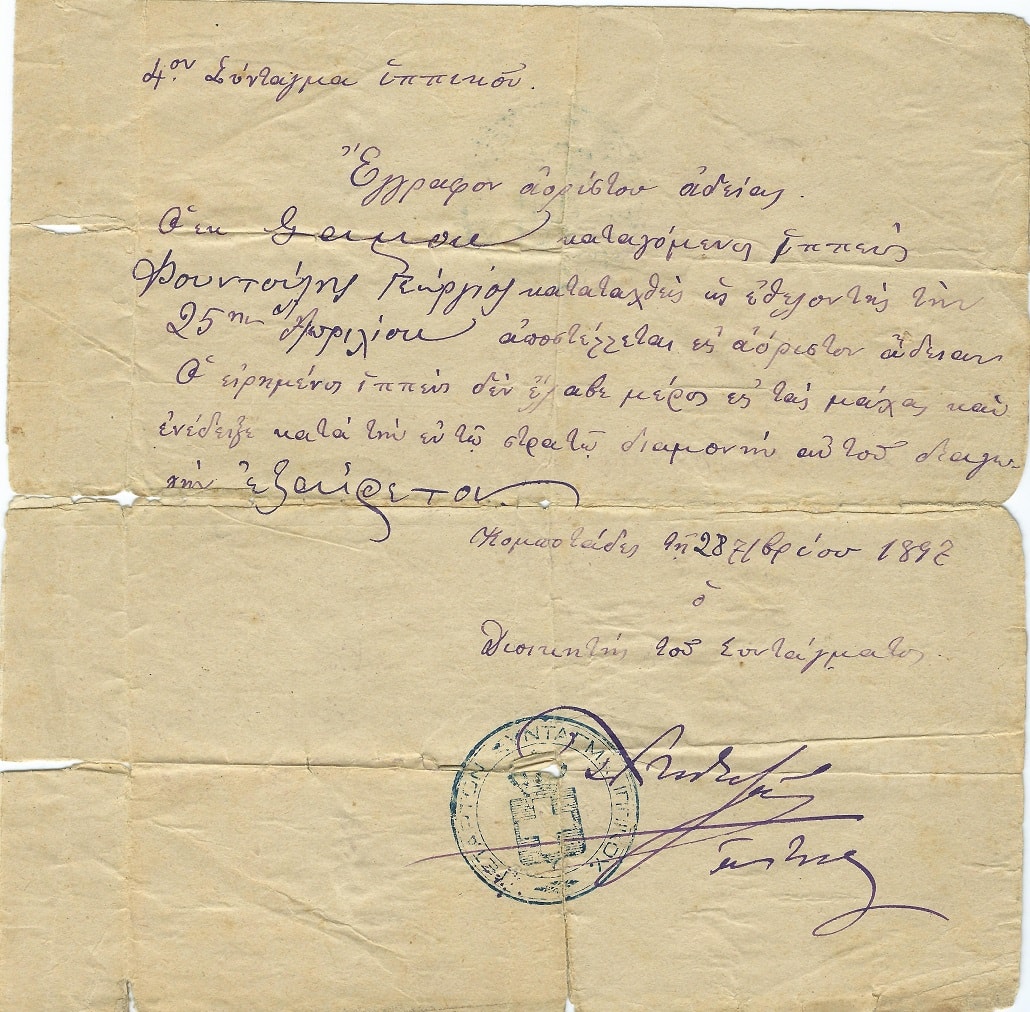 4ον Σύνταγμα ἱππικοῦ.
Ἔγγραφον ἀορίστου ἀδείας.
Ὁ ἐκ Σάμου καταγόμενος ἱππεὺς
Φουντούλης Γεώργιος καταταχθεὶς ὡς ἐθελοντὴς τὴν
25ην Ἀπριλίου ἀποστέλλεται εἰς ἀόριστον ἄδειαν
Ὁ εἰρημένος ἱππεὺς δὲν ἔλαβε μέρος εἰς τὰς μάχας καὶ
ἐνέδειξε κατὰ τὴν ἐν τῷ στρατῷ διαμονὴν αὐτοῦ διαγω-
γὴν ἐξαίρετον
Κομποτάδες τῇ 28 7/βρίου 1897
ὁ
Διοικητὴς τοῦ Συντάγματος
ΤΕΤΑΡΤΟΝ ΣΥΝΤΑΓΜΑ ΙΠΠΙΚΟΥ